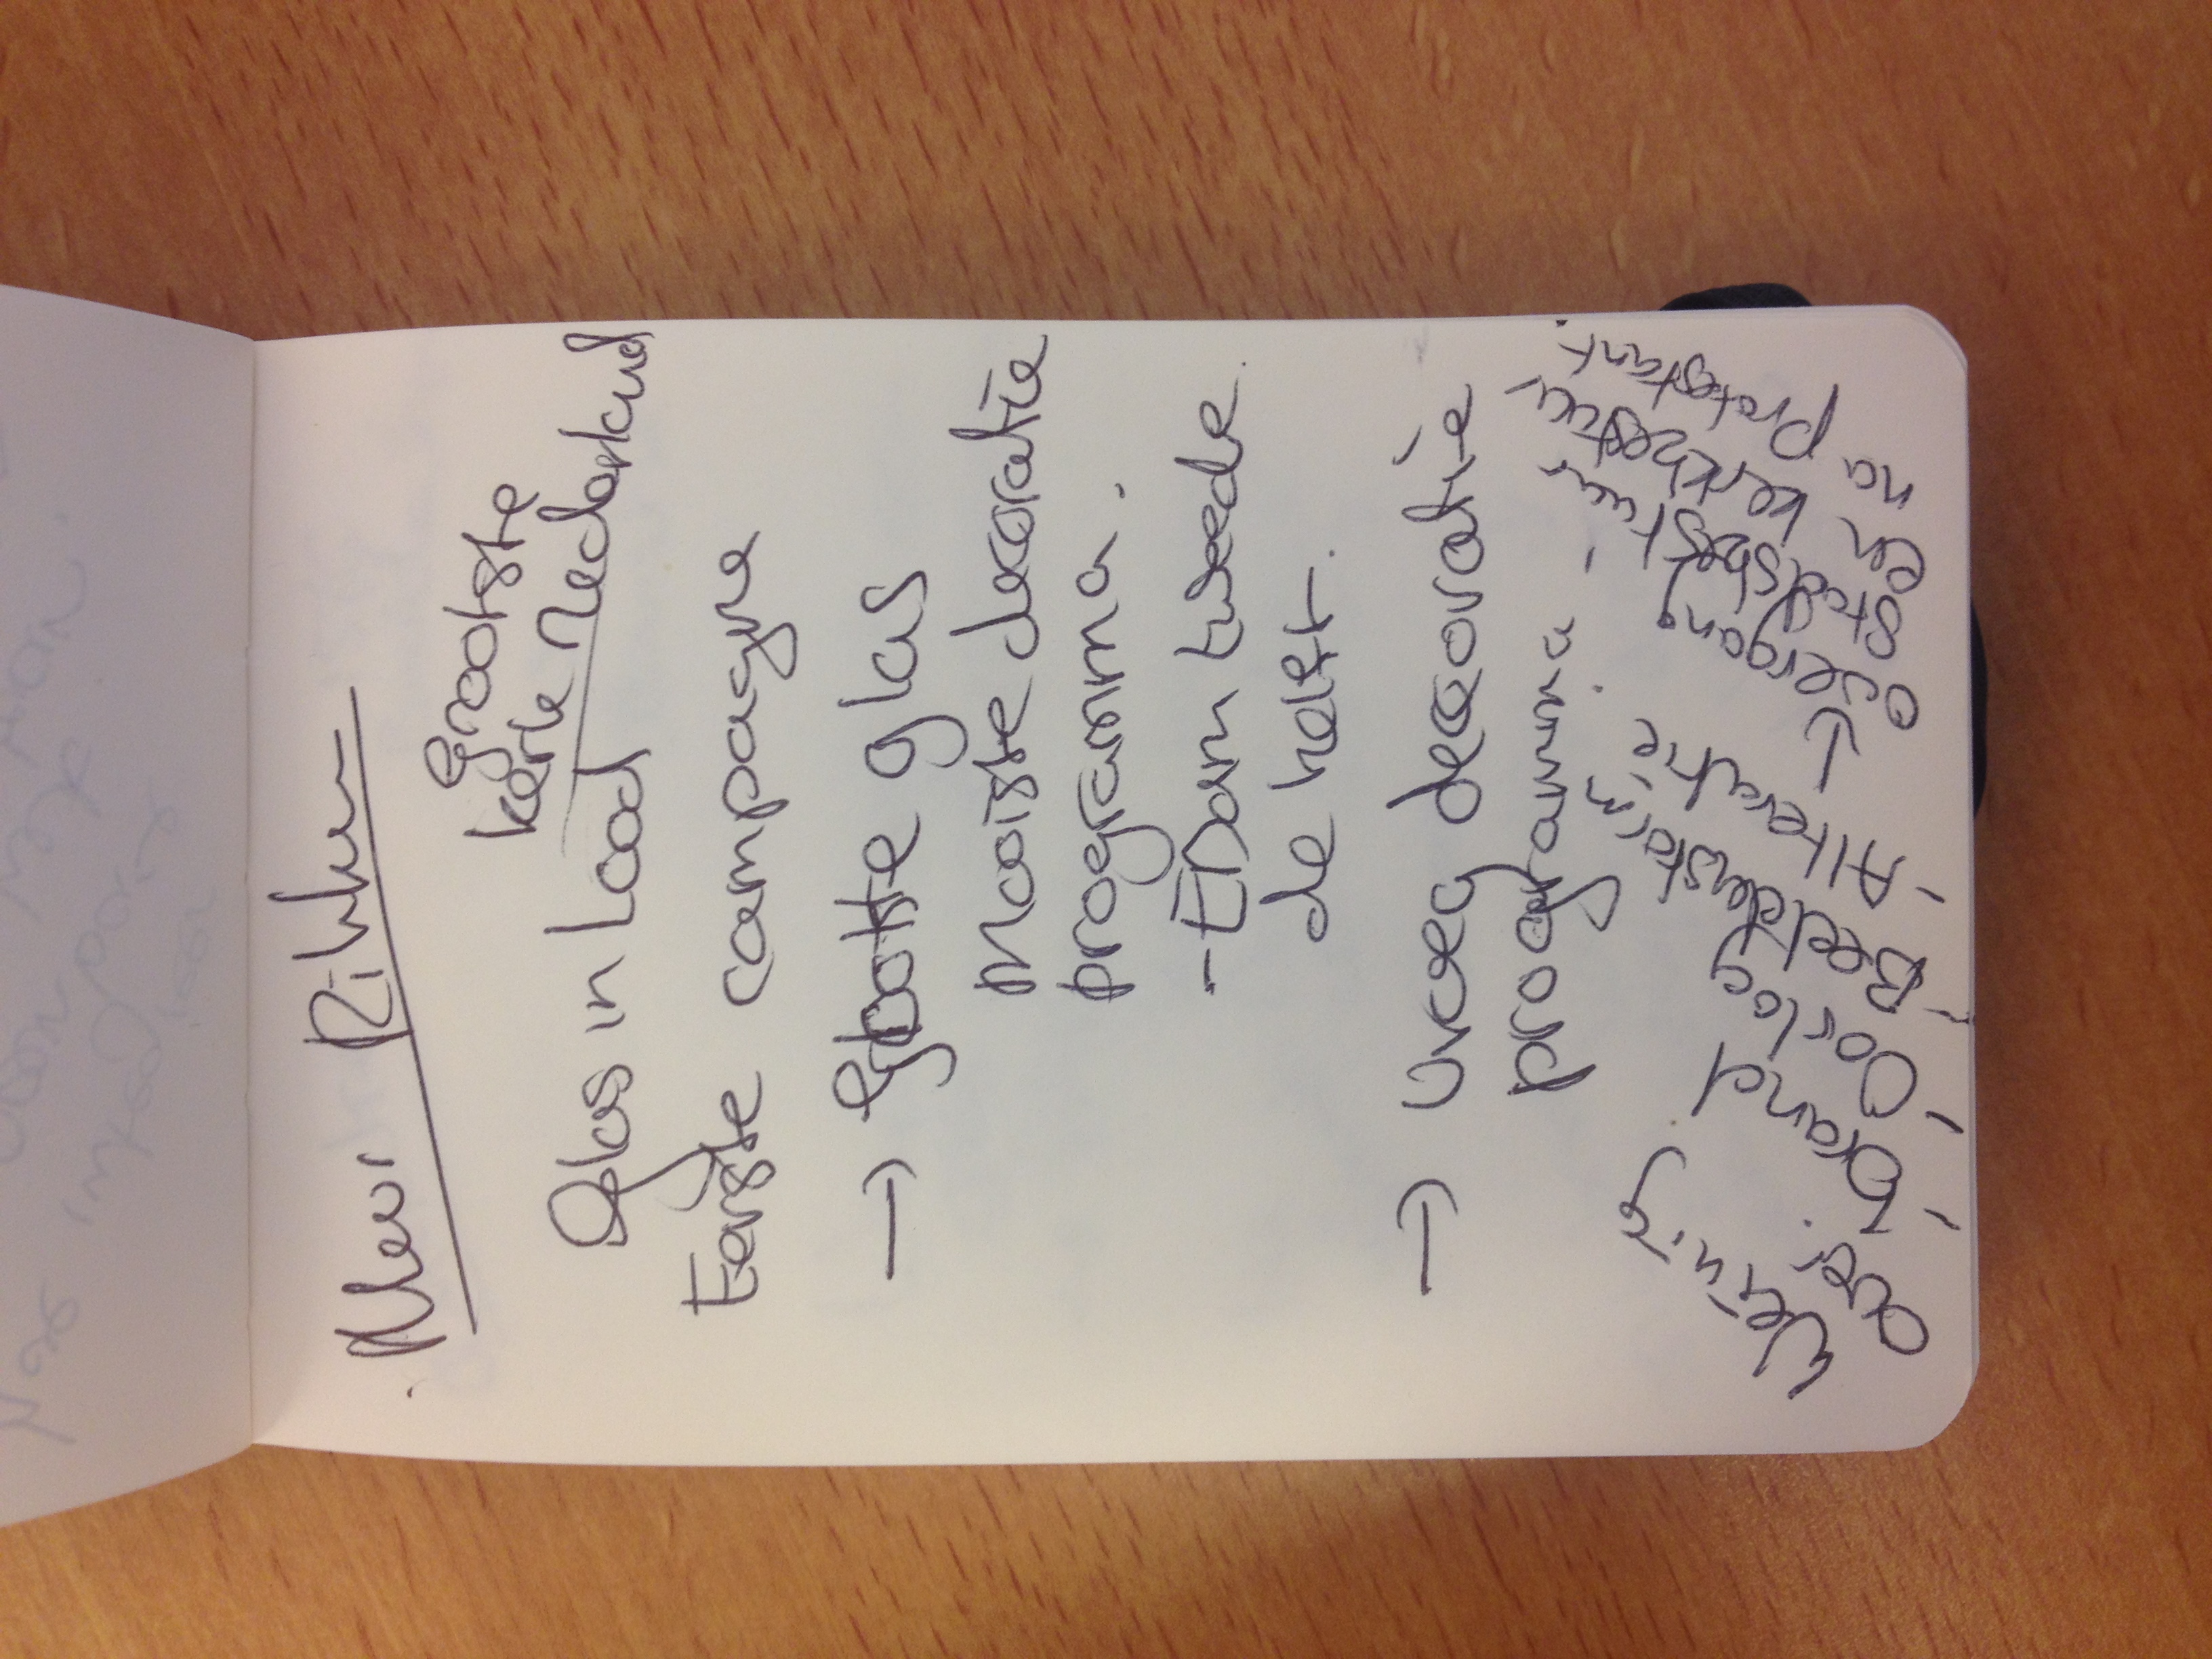 Grootste
kerk Nederland
Glas in Lood
Eerste campagne
→ Grootste glas
Mooiste decoratie
programma.
- EDam tweede
de helft.
→ vroeg decoratie
programma -
Weinig
over.
- brand
- Oorlog
- Beeldenstorm
- Alteratie
→ overgang
stadsbestuur
en kerkbestuur
na protestant